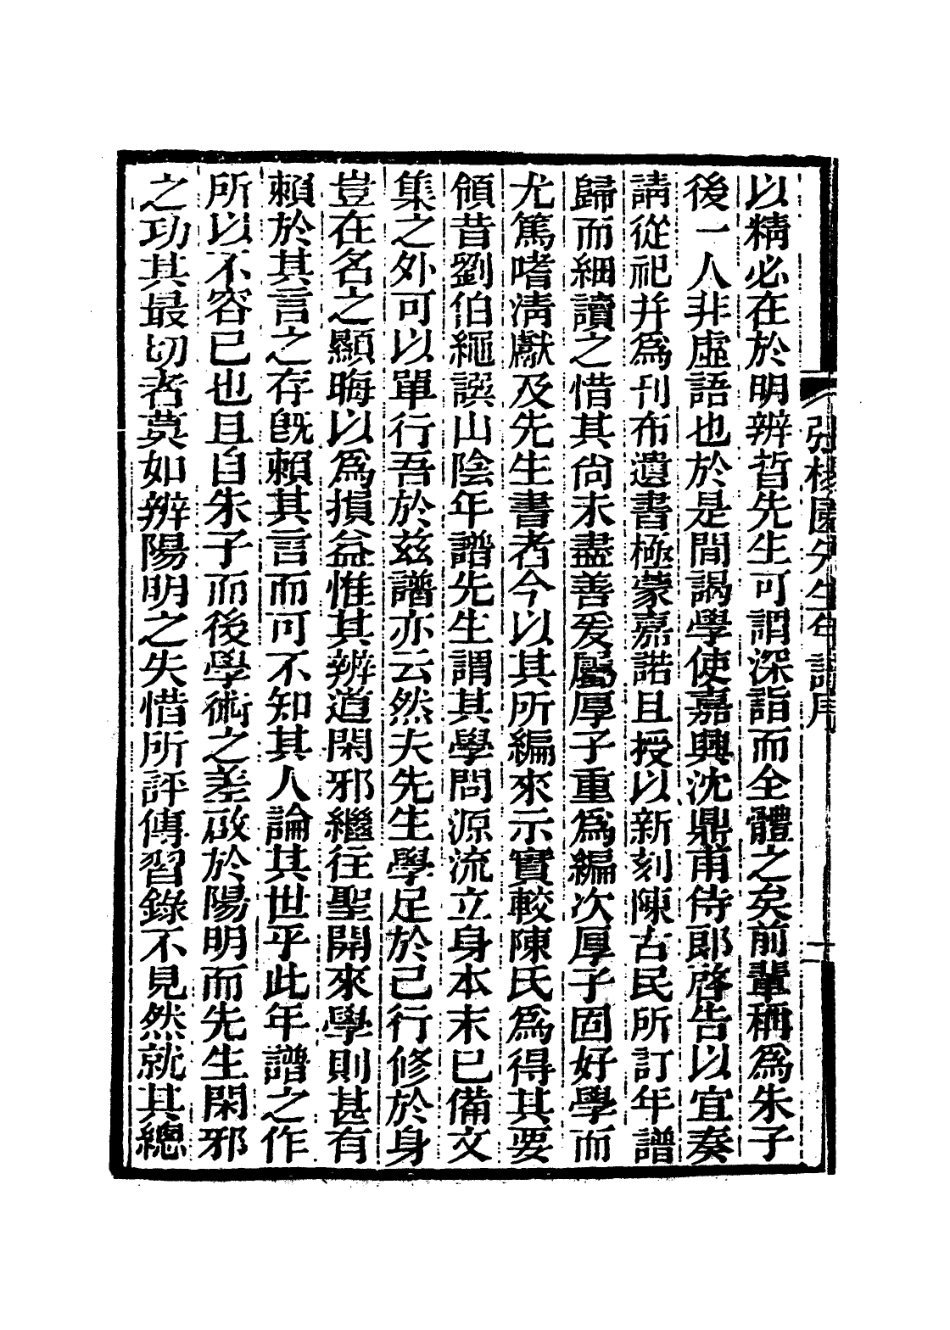 張楊園先生年譜序
二
以精必在於明辨晢先生可謂深詣而全體之矣前輩稱爲朱子
後一人非虛語也於是閒謁學使嘉興沈鼎甫侍郎啓告以宜奏
請從祀幷爲刊布遺書極蒙嘉諾且授以新刻陳古民所訂年譜
歸而細讀之惜其尙未盡善爰屬厚子重爲編次厚子固好學而
尤篤嗜淸獻及先生書者今以其所編來示實較陳氏爲得其要
領昔劉伯繩譔山陰年譜先生謂其學問源流立身本末已備文
集之外可以單行吾於茲譜亦云然夫先生學足於己行修於身
豈在名之顯晦以爲損益惟其辨道閑邪繼往聖開來學則甚有
賴於其言之存旣賴其言而可不知其人論其世乎此年譜之作
所以不容已也且自朱子而後學術之差啟於陽明而先生閑邪
之功其最切者莫如辨陽明之失惜所評傳習錄不見然就其總